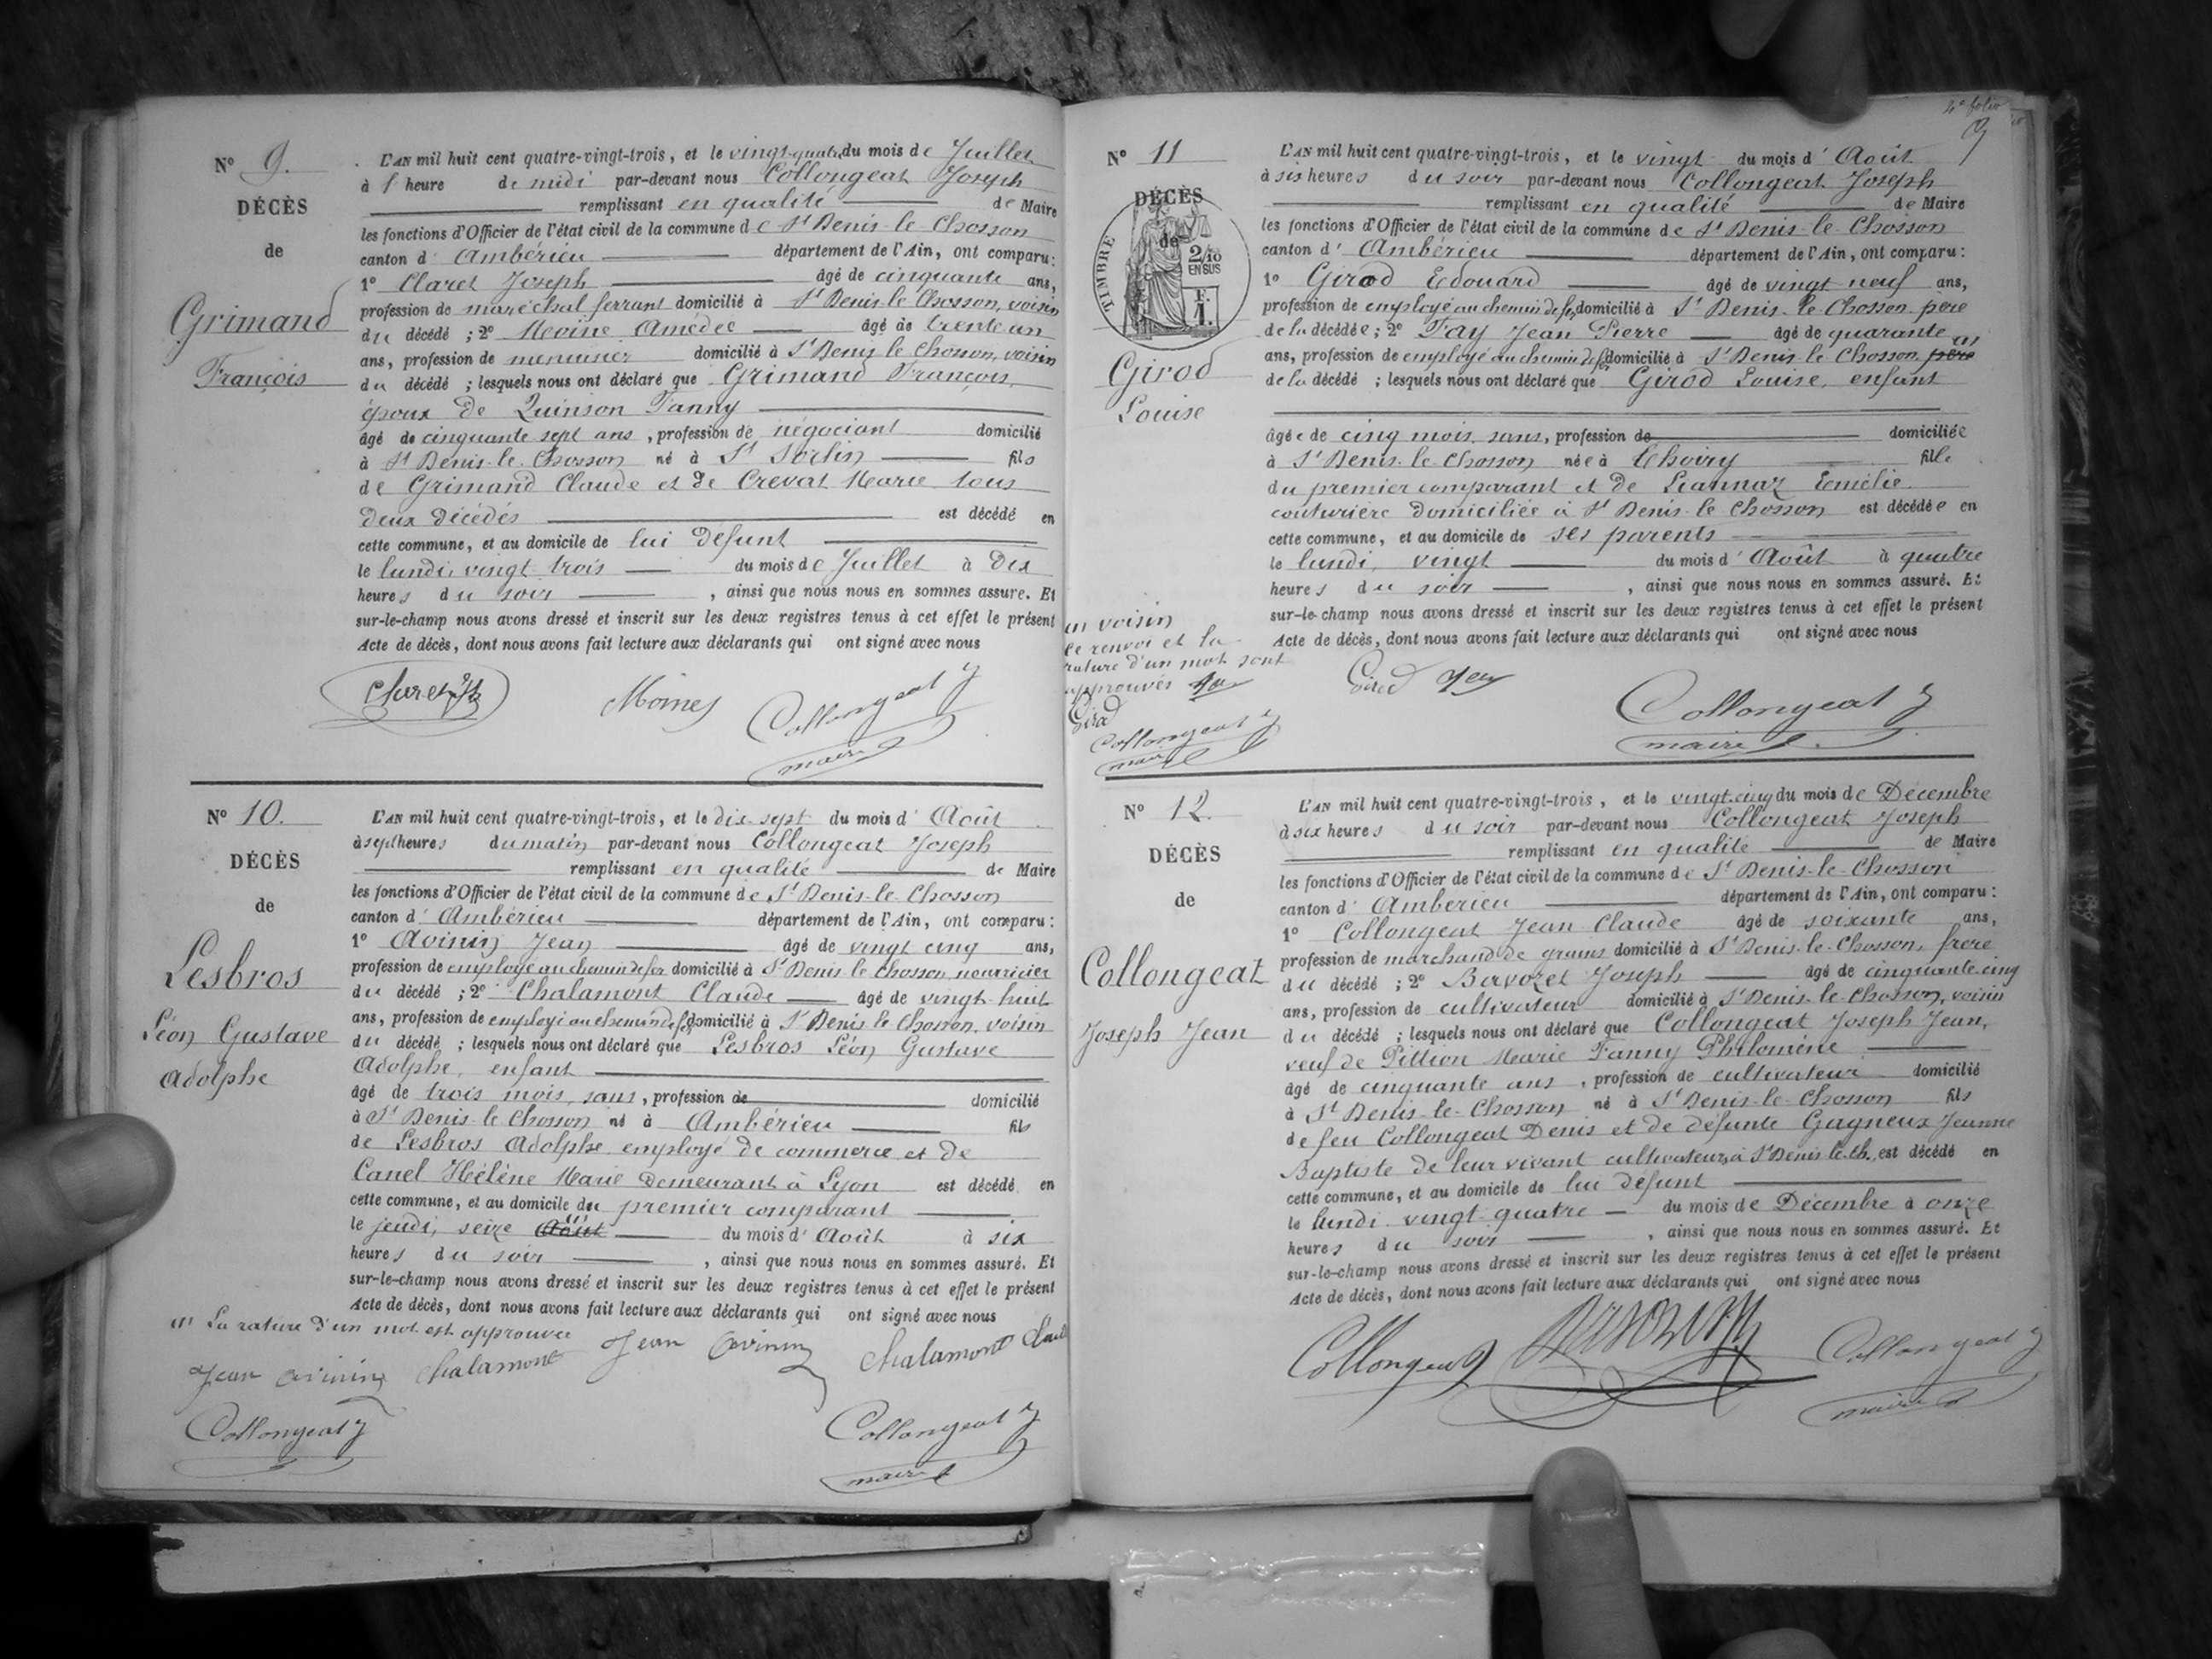 N° 9.
DÉCÈS
de
Grimand
François
L'AN mil huit cent quatre-vingt-trois, et le vingt-quatre du mois de Juillet
à 1 heure de midi par-devant nous Collongeat Joseph
remplissant en qualité de Maire
les fonctions d'Officier de l'état civil de la commune de St Denis-le-Chosson
canton d' Ambérieu département de l'Ain, ont comparu:
1° Claret Joseph âgé de cinquante ans,
profession de maréchal ferrant domicilié à St Denis-le-Chosson, voisin
du décédé ; 2° Moine Amédée âgé de trente un
ans, profession de menuisier domicilié à St Denis le Chosson, voisin
du décédé ; lesquels nous ont déclaré que Grimand François,
époux de Quinson Fanny
âgé de cinquante sept ans, profession de négociant domicilié
à St Denis-le-Chosson né à St Sorlin fils
de Grimand Claude et de Crevat Marie tous
deux décédés est décédé en
cette commune, et au domicile de lui défunt
le lundi, vingt trois du mois de Juillet à dix
heures du soir, ainsi que nous nous en sommes assuré. Et
sur-le-champ nous avons dressé et inscrit sur les deux registres tenus à cet effet le présent
Acte de décès, dont nous avons fait lecture aux déclarants qui ont signé avec nous
Claret Jh Moine Collongeat J
maire
N° 10.
DÉCÈS
de
Lesbros
Léon Gustave
Adolphe
L'AN mil huit cent quatre-vingt-trois, et le dix-sept du mois d' Août
à sept heures du matin par-devant nous Collongeat Joseph
remplissant en qualité de Maire
les fonctions d'Officier de l'état civil de la commune de St Denis-le-Chosson
canton d' Ambérieu département de l'Ain, ont comparu:
1° Avinin Jean âgé de vingt cinq ans,
profession de employé au chemin de fer domicilié à St Denis le Chosson, nourricier
du décédé ; 2° Chalamont Claude âgé de vingt-huit
ans, profession de employé au chemin de fer domicilié à St Denis le Chosson, voisin
du décédé ; lesquels nous ont déclaré que Lesbros Léon Gustave
Adolphe, enfant
âgé de trois mois, sans, profession de domicilié
à St Denis-le-Chosson né à Ambérieu fils
de Lesbros Adolphe employé de commerce et de
Canel Hélène Marie demeurant à Lyon est décédé en
cette commune, et au domicile du premier comparant
le jeudi, seize Août (1) du mois d' Août à six
heures du soir, ainsi que nous nous en sommes assuré. Et
sur-le-champ nous avons dressé et inscrit sur les deux registres tenus à cet effet le présent
Acte de décès, dont nous avons fait lecture aux déclarants qui ont signé avec nous
(1) La rature d'un mot est approuvée
Jean Avinin Chalamont Jean Avinin Chalamont Claude
Collongeat J Collongeat J
maire
4e folio
N° 11
DÉCÈS
de
TIMBRE
2/10
EN SUS
F.
1.
Girod
Louise
L'AN mil huit cent quatre-vingt-trois, et le vingt du mois d' Août
à six heures du soir par-devant nous Collongeat Joseph
remplissant en qualité de Maire
les fonctions d'Officier de l'état civil de la commune de St Denis-le-Chosson
canton d' Ambérieu département de l'Ain, ont comparu:
1° Girod Edouard âgé de vingt neuf ans,
profession de employé au chemin de fer, domicilié à St Denis-le-Chosson père
de la décédée ; 2° Fay Jean Pierre âgé de quarante
ans, profession de employé au chemin de fer domicilié à St Denis-le-Chosson père (1)
de la décédé ; lesquels nous ont déclaré que Girod Louise, enfant
âgée de cinq mois, sans, profession de domiciliée
à St Denis-le-Chosson née à Thoiry fille
du premier comparant et de Leannaz Emélie
couturière domiciliée à St Denis-le-Chosson est décédée en
cette commune, et au domicile de ses parents
le lundi, vingt du mois d' Août à quatre
heures du soir, ainsi que nous nous en sommes assuré. Et
sur-le-champ nous avons dressé et inscrit sur les deux registres tenus à cet effet le présent
Acte de décès, dont nous avons fait lecture aux déclarants qui ont signé avec nous
(1) voisin
Ce renvoi et la
rature d'un mot sont
approuvés
Girod
Collongeat J
maire
Girod Fay Collongeat J
maire
N° 12.
DÉCÈS
de
Collongeat
Joseph Jean
L'AN mil huit cent quatre-vingt-trois, et le vingt-cinq du mois de Décembre
à six heures du soir par-devant nous Collongeat Joseph
remplissant en qualité de Maire
les fonctions d'Officier de l'état civil de la commune de St Denis-le-Chosson
canton d' Ambérieu département de l'Ain, ont comparu:
1° Collongeat Jean Claude âgé de soixante ans,
profession de marchand de grains domicilié à St Denis-le-Chosson, frère
du décédé ; 2° Barvozet Joseph âgé de cinquante-cinq
ans, profession de cultivateur domicilié à St Denis-le-Chosson, voisin
du décédé ; lesquels nous ont déclaré que Collongeat Joseph Jean,
veuf de Pittion Marie Fanny Philomène
âgé de cinquante ans, profession de cultivateur domicilié
à St Denis-le-Chosson né à St Denis-le-Chosson fils
de feu Collongeat Denis et de défunte Gagneux Jeanne
Baptiste de leur vivant cultivateurs à St Denis le Ch. est décédé en
cette commune, et au domicile de lui défunt
le lundi vingt-quatre du mois de Décembre à onze
heures du soir, ainsi que nous nous en sommes assuré. Et
sur-le-champ nous avons dressé et inscrit sur les deux registres tenus à cet effet le présent
Acte de décès, dont nous avons fait lecture aux déclarants qui ont signé avec nous
Collongeat Collongeat J
maire